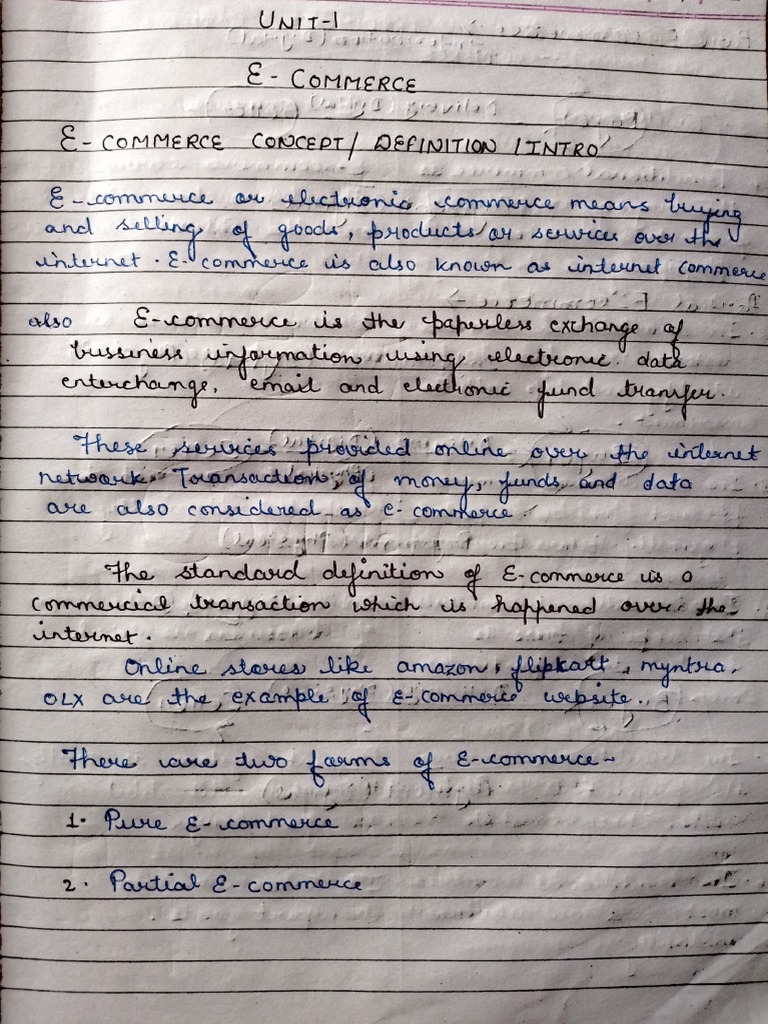 UNIT-1
E-COMMERCE
E-COMMERCE CONCEPT/ DEFINITION /INTRO
E-commerce or electronic commerce means buying
and selling of goods, products or services over the
internet. E-commerce is also known as internet commerce
also E-commerce is the paperless exchange of
bussiness information using electronic data
enterchange, email and electronic fund transfer.
These services provided online over the internet
network. Transactions of money, funds and data
are also considered as e-commerce.
The standard definition of E-commerce is a
commercial transaction which is happened over the
internet.
Online stores like amazon, flipkart, myntra,
OLX are the example of E-commerce website.
There are two forms of E-commerce-
1. Pure E-commerce
2. Partial E-commerce